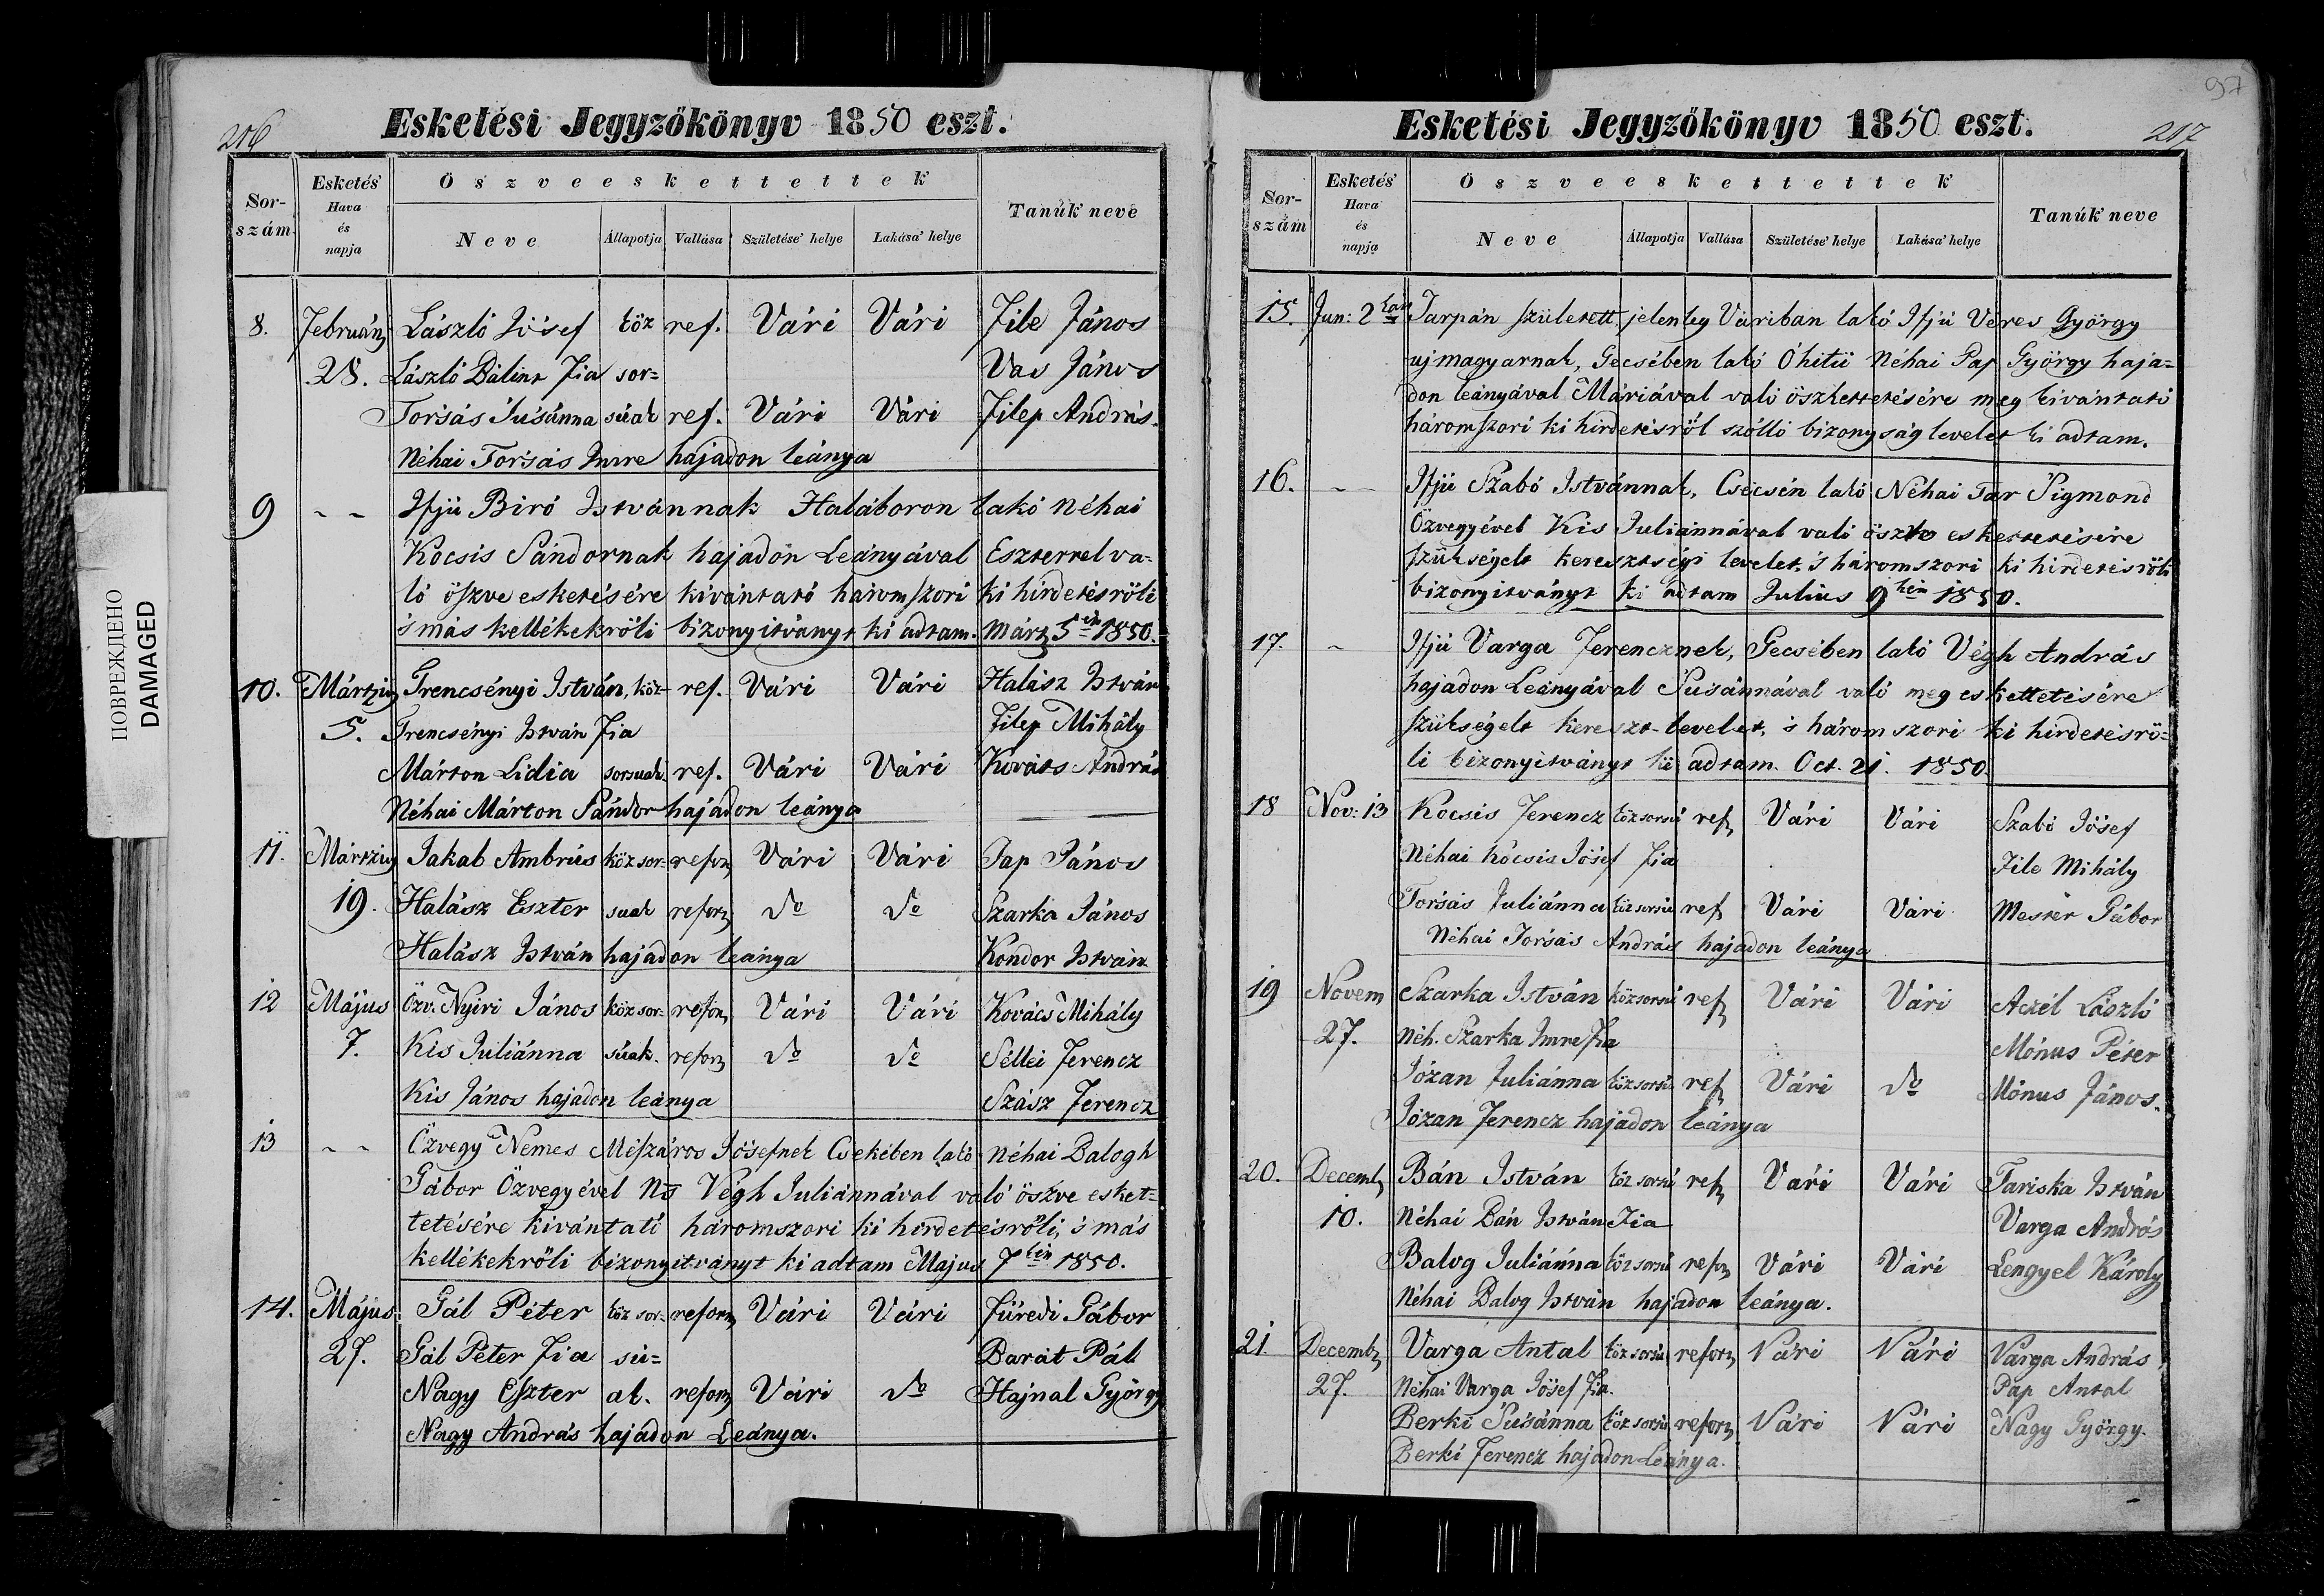 206
Esketési Jegyzőkönyv 1850 eszt.
Sor-
szám
Esketés'
Hava
és
napja
Öszveeskettettek
Neve
Állapotja
Vallása
Születése' helye
Lakása' helye
Tanúk' neve
8. Február László Jósef köz ref. Vári Vári File János
28. László Bálint Fia sor= Vas János
Torsás Susánna súak ref. Vári Vári Filep András.
Néhai Torsás Imre hajadon leánya
9 - - Ifjú Biró Istvánnak Haláboron lakó néhai
Kocsis Sándornak hajadon Leányával Eszterrel va-
ló öszve esketésére kivántató háromszori ki hirdetésröli
's más kellékekröli bizonyitványt ki adtam. Märtz 5én 1850.
10. Mártzius Trencsényi István, köz- ref. Vári Vári Halász István
5. Trencsényi István Fia Filep Mihály
Márton Lidia sorsuak. ref. Vári Vári Kováts András
Néhai Márton Sándor hajadon leánya
11. Mártzius Jakab Ambrús köz sor= refor Vári Vári Pap János
19. Halász Eszter suak refor do do Szarka János
Halász István hajadon leánya Kóndor István
12 Május Özv. Nyiri János köz sor= refor Vári Vári Kovács Mihály
7. Kis Juliánna súak. refor do do Séllei Ferencz
Kis János hajadon leánya Szász Ferencz
13 - - Özvegy Nemes Mészáros Jósefnek Csekében lakó néhai Balogh
Gábor Özvegyével Ns Végh Juliánnával való öszve esket=
tetésére kivántató háromszori ki hirdetésröli, 's más
kellékekröli bizonyitványt ki adtam Május 7kén 1850.
14. Május Gál Péter köz sor= reform Vári Vári Füredi Gábor
27. Gál Péter Fia sú= Barát Pál
Nagy Eszter ak. reform Vári do Hajnal György
Nagy András hajadon Leánya.
ПОВРЕЖДЕНО
DAMAGED
97
Esketési Jegyzőkönyv 1850 eszt.
217
Sor-
szám
Esketés'
Hava
és
napja
Öszveeskettettek
Neve
Állapotja
Vallása
Születése' helye
Lakása' helye
Tanúk' neve
15. Jun: 2kán Tarpán született, jelenleg Váriban lakó Ifjú Véres György
uj magyarnak, Gecsében lakó Óhitü Néhai Pap György haja=
don leányával Máriával való öszkettetésére meg kivántató
háromszori ki hirdetésröl szólló bizonyság levelet ki adtam.
16. - Ifjú Szabó Istvánnak, Csécsén lakó Néhai Tar Sigmond
Özvegyével Kis Juliánnával való öszve eskettetésére
szükségelt keresztségi levelet, 's háromszori ki hirdetésröli
bizonyitványt ki adtam Julius 9kén 1850.
17. - Ifjú Varga Ferencznek, Gecsében lakó Végh András
hajadon Leányával Susánnával való meg eskettetésére
szükségelt kereszt-levelet, 's háromszori ki hirdetésrö=
li bizonyitványt ki adtam. Oct. 21. 1850.
18 Nov: 13 Kócsis Ferencz köz sorsú ref Vári Vári Szabó Jósef
Néhai Kócsis Jósef Fia File Mihály
Torsás Juliánna köz sorsú ref Vári Vári Mester Gábor
Néhai Torsás András hajadon leánya
19 Novem Szarka István közsorsú ref Vári Vári Aczél László
27. Néh. Szarka Imre Fia Mónus Péter
Józan Juliánna köz sorsú ref Vári do Mónus János.
Józan Ferencz hajadon leánya
20. Decemb Bán István köz sorsú ref Vári Vári Tariska István
10. Néhai Bán István Fia Varga András
Balog Juliánna köz sorsú refor Vári Vári Lengyel Károly
Néhai Balog István hajadon leánya.
21. Decemb Varga Antal köz sorsú reform Vári Vári Varga András
27. Néhai Varga Jósef Fia. Pap Antal
Berki Susánna köz sorsú reform Vári Vári Nagy György.
Berki Ferencz hajadon Leánya.